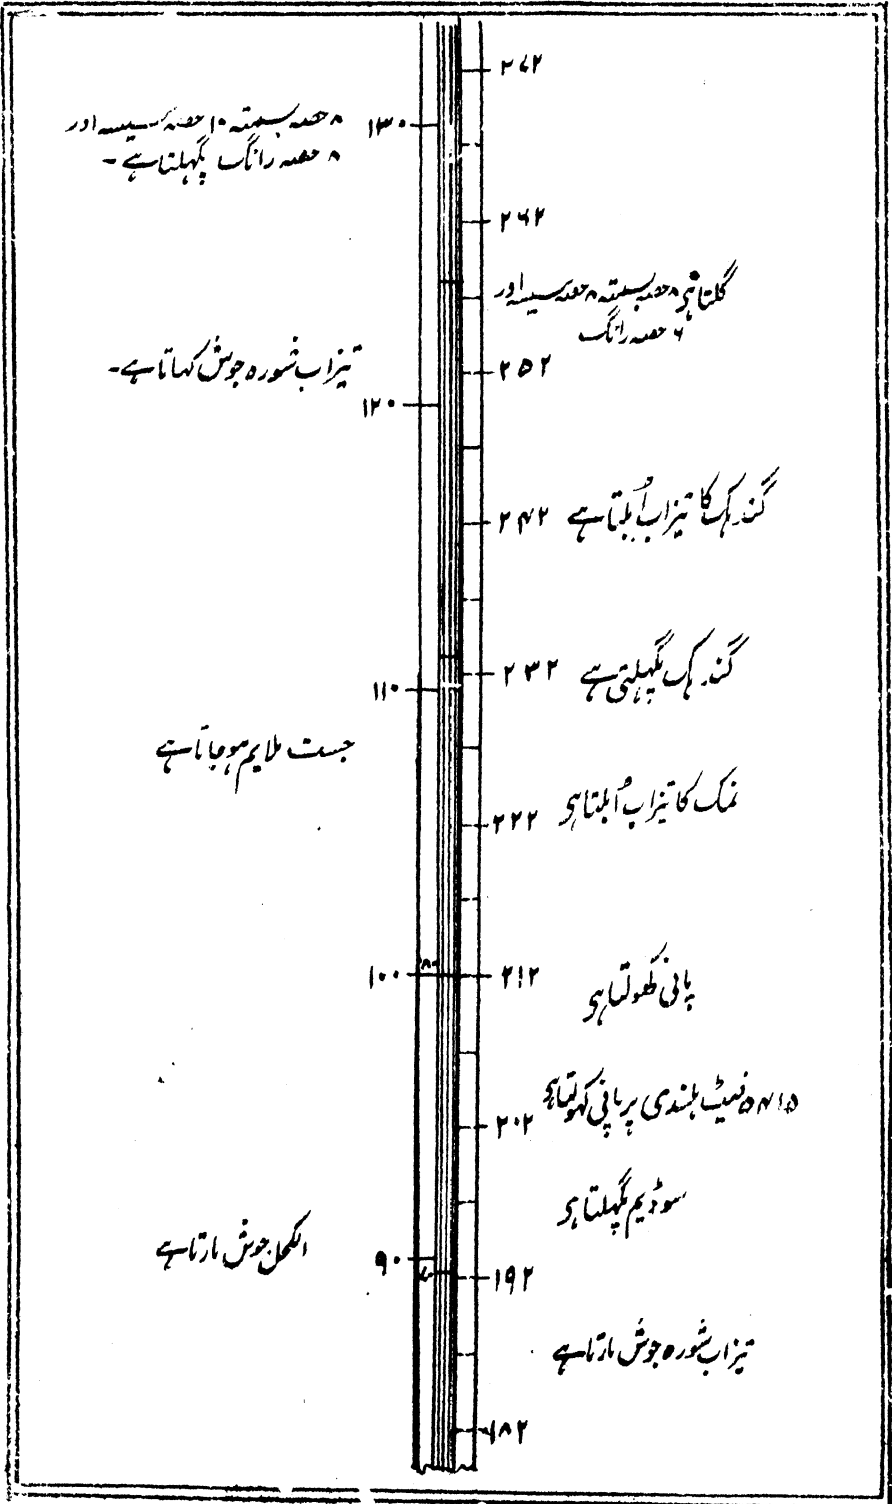 ۲۷۲
۱۳۰
۸ حصہ بسمتہ ۱۰ حصہ سیسہ اور
۸ حصہ رانگ پگہلتا ہے ۔
۲۶۲
گلتا ہی ۸ حصہ بسمتہ ۸ حصہ سیسہ اور
۶ حصہ رانگ
تیزاب شورہ جوش کہاتا ہے ۔
۲۵۲
۱۲۰
۲۴۲
گندہک کا تیزاب اُبلتا ہے
۲۳۲
گندہک پگہلتی ہے
۱۱۰
جست ملایم ہو جاتا ہے
نمک کا تیزاب اُبلتا ہی
۲۲۲
۸۰
۱۰۰
۲۱۲
پانی کھولتا ہی
۵۴۱۵ فیٹ بلندی پر پانی کہولتا ہی
۲۰۲
سوڈیم پگہلتا ہی
الکحل جوش مارتا ہے
۹۰
۱۹۲
تیزاب شورہ جوش مارتا ہے
۱۸۲